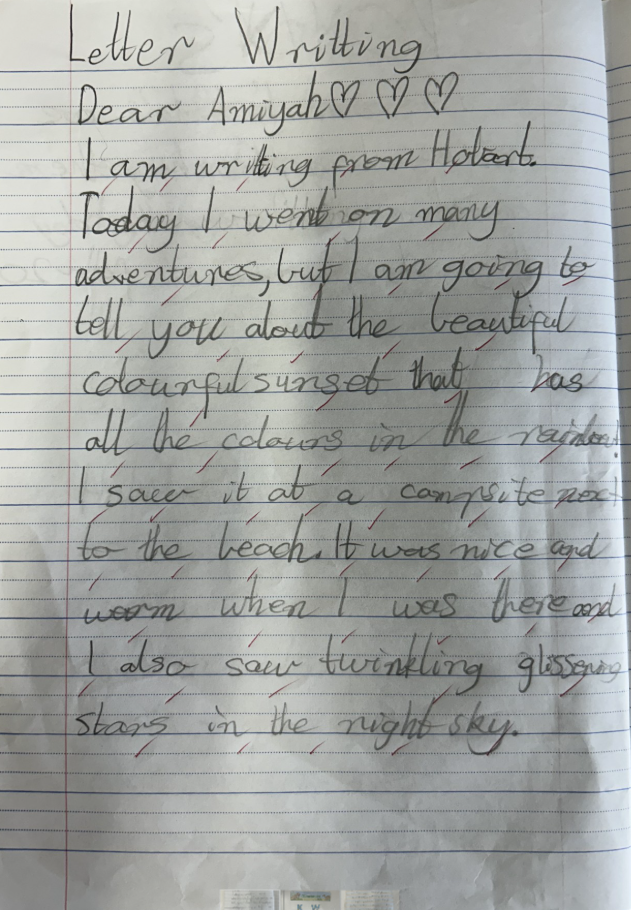 Letter Writting
Dear Amiyah♡ ♡ ♡
I am writing from Hobart.
Today I went on many
adventures, but I am going to
tell you about the beautiful
colourful sunset that has
all the colours in the rainbow!
I saw it at a campsite next
to the beach. It was nice and
worm when I was there and
I also saw twinkling glissening
stars in the night sky.
K W